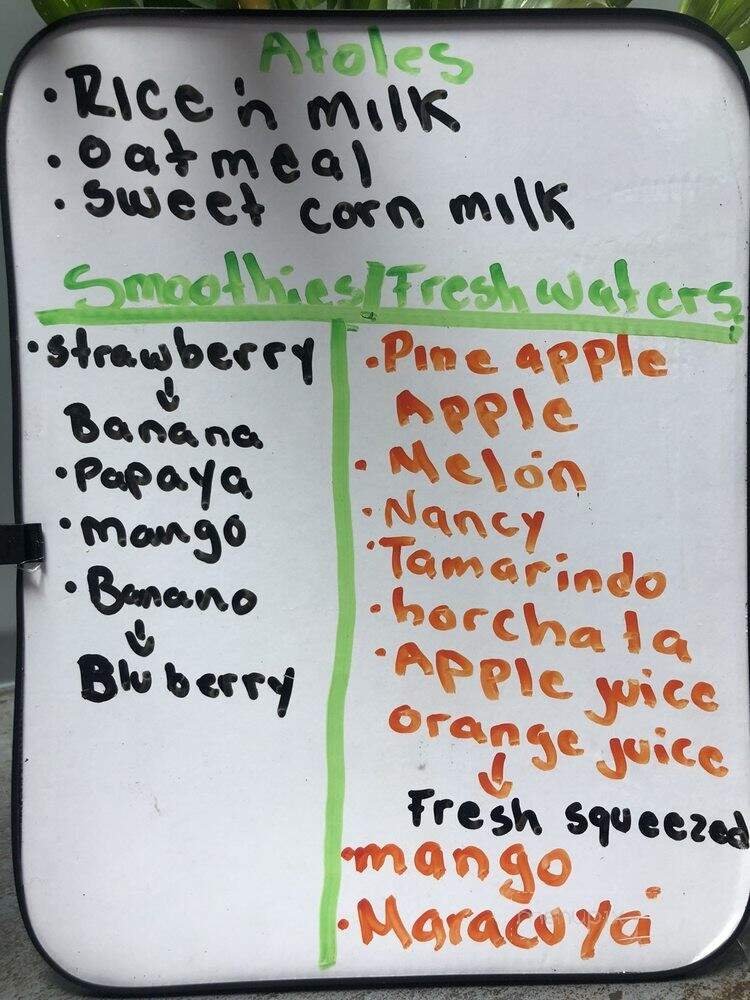 Atoles
• Rice 'n milk
• oatmeal
• sweet corn milk
Smoothies/Fresh waters
• strawberry
↓
Banana
• Papaya
• Mango
• Banano
↓
Bluberry
• Pine apple
Apple
• Melón
• Nancy
• Tamarindo
• horchata
• Apple juice
orange juice
↓
Fresh squeezed
• mango
• Maracuyá